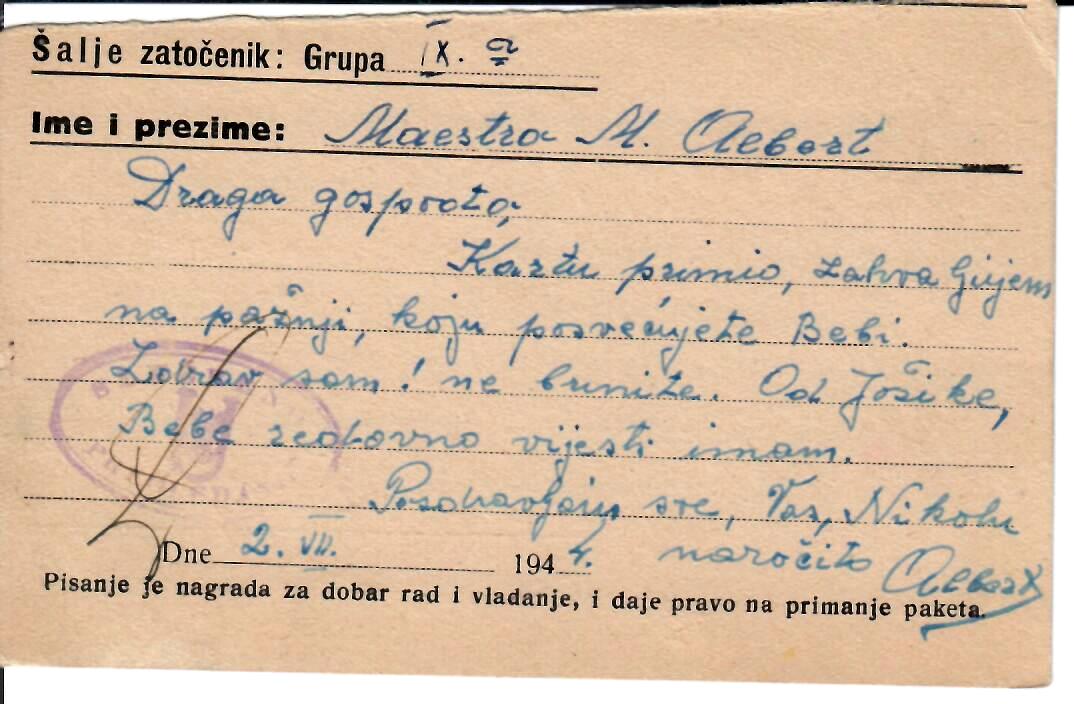 Šalje zatočenik: Grupa IX. a
Ime i prezime: Maestro M. Albert
Draga gospođo,
Kartu primio, zahvaljujem
na pažnji, koju posvećujete Bebi.
Zdrav sam! ne brinite. Od Jošike,
Bebe redovno vijesti imam.
Pozdravljam sve, Vas, Nikolu
Dne 2. VII. 1944. naročito Albert
Pisanje je nagrada za dobar rad i vladanje, i daje pravo na primanje paketa.